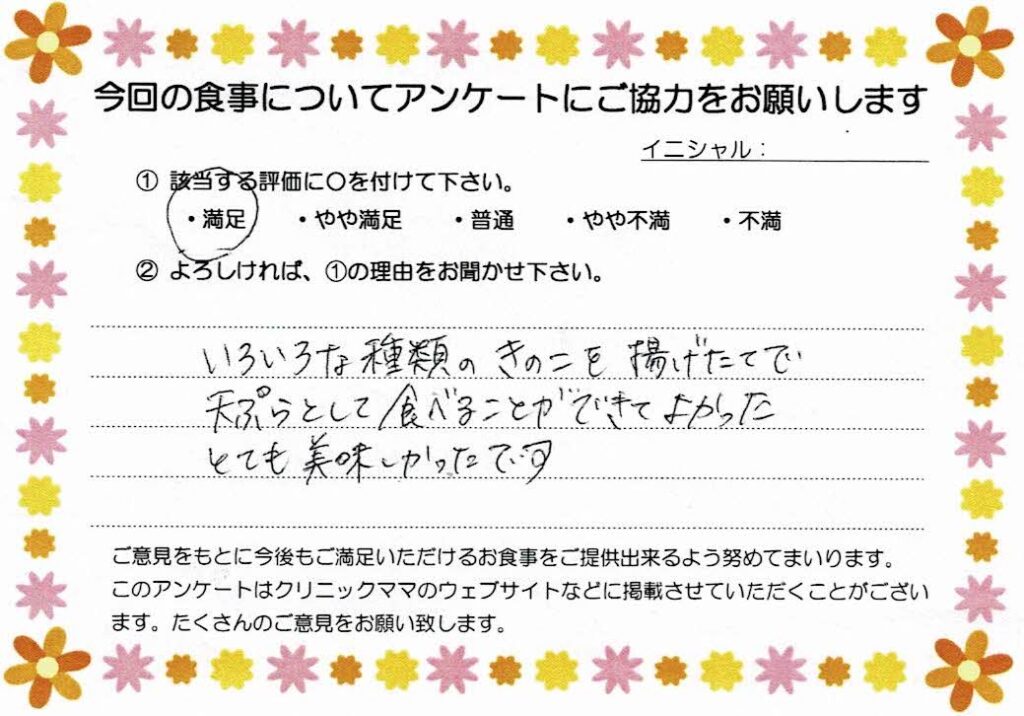 今回の食事についてアンケートにご協力をお願いします
イニシャル：
① 該当する評価に〇を付けて下さい。
・満足 ・やや満足 ・普通 ・やや不満 ・不満
② よろしければ、①の理由をお聞かせ下さい。
いろいろな種類のきのこを揚げたてで
天ぷらとして食べることができてよかった
とても美味しかったです
ご意見をもとに今後もご満足いただけるお食事をご提供出来るよう努めてまいります。
このアンケートはクリニックママのウェブサイトなどに掲載させていただくことがござい
ます。たくさんのご意見をお願い致します。